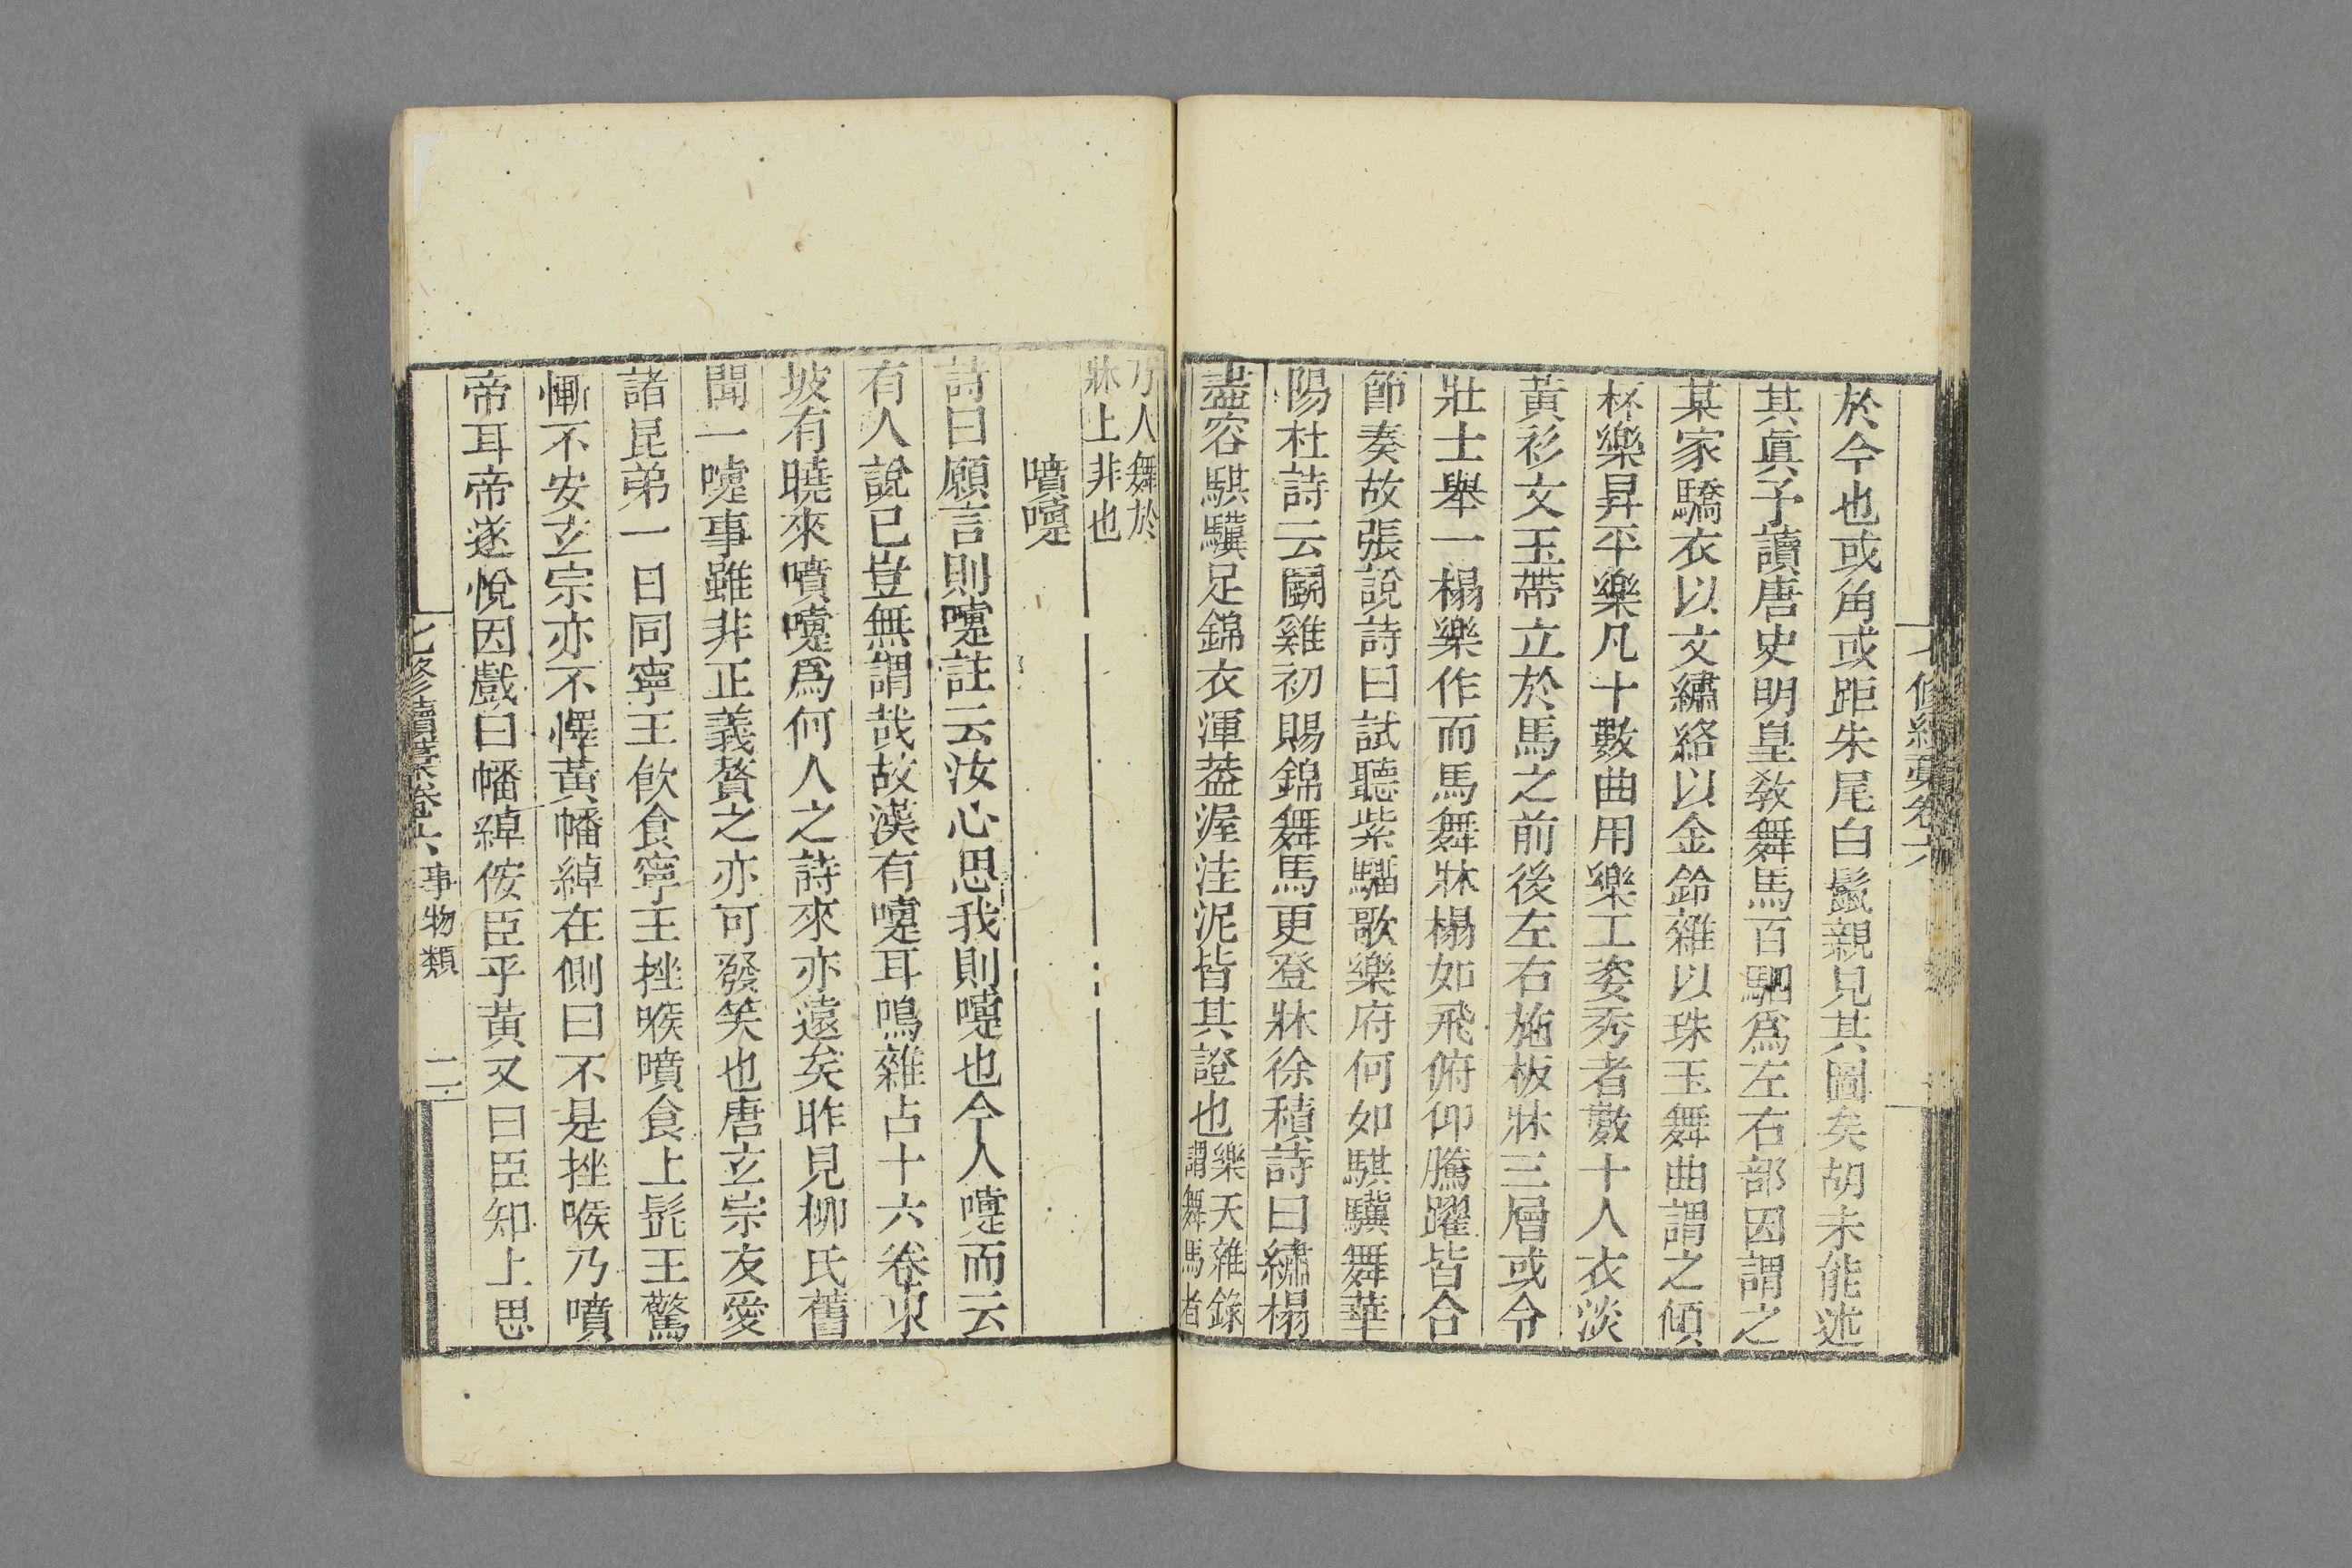 於今也或角或距朱尾白鬣親見其圖矣胡未能述
其眞予讀唐史明皇教舞馬百駟爲左右部因謂之
某家驕衣以文繡絡以金鈴雜以珠玉舞曲謂之傾
杯樂昇平樂凡十數曲用樂工姿秀者數十人衣淡
黃衫文玉帶立於馬之前後左右施板牀三層或令
壯士舉一榻樂作而馬舞牀榻如飛俯仰騰躍皆合
節奏故張說詩曰試聽紫騮歌樂府何如騏驥舞華
陽杜詩云鬭雞初賜錦舞馬更登牀徐積詩曰繡榻
盡容騏驥足錦衣渾葢渥洼泥皆其證也樂天雜錄
謂舞馬者
乃人舞於
牀上非也
噴嚏
詩曰願言則嚏註云汝心思我則嚏也今人嚏而云
有人說已豈無謂哉故漢有嚏耳鳴雜占十六卷東
坡有曉來噴嚏爲何人之詩來亦遠矣昨見柳氏舊
聞一嚏事雖非正義贅之亦可發笑也唐玄宗友愛
諸昆弟一日同寧王飮食寧王挫喉噴食上髭王驚
慚不安玄宗亦不懌黃幡綽在側曰不是挫喉乃噴
帝耳帝遂悅因戲曰幡綽侫臣乎黃又曰臣知上思
七修續藁卷六 事物類 二